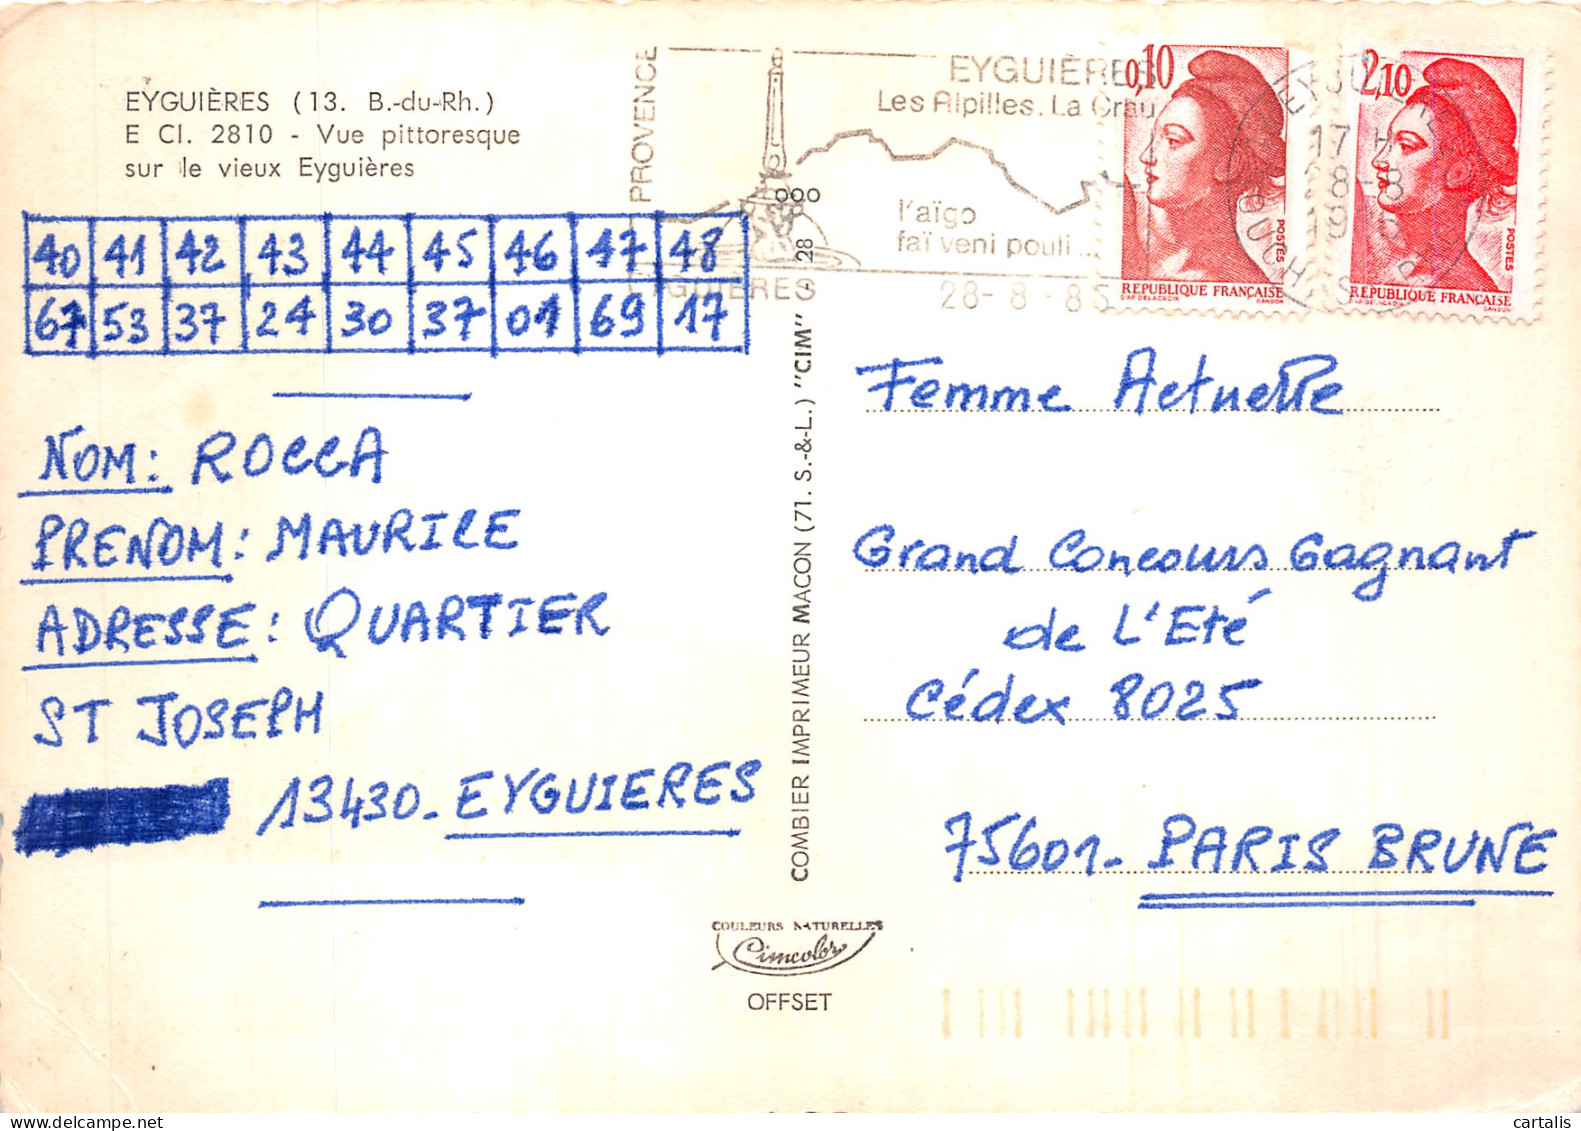 EYGUIÈRES (13. B.-du-Rh.)
E CI. 2810 - Vue pittoresque
sur le vieux Eyguières
40 41 42 43 44 45 46 47 48
61 53 37 24 30 37 01 69 17
NOM: ROCCA
PRENOM: MAURICE
ADRESSE: QUARTIER
ST JOSEPH
13430- EYGUIERES
PROVENCE
EYGUIÈRES
Les Alpilles. La Crau
l'aïgo
faï veni pouli...
EYGUIÈRES
28-8-85
0,10
POSTES
RÉPUBLIQUE FRANÇAISE
2,10
POSTES
RÉPUBLIQUE FRANÇAISE
17 H
28-8
COMBIER IMPRIMEUR MACON (71. S.-&-L.) "CIM" - 28
Femme Actuelle
Grand Concours Gagnant
de L'Eté
Cédex 8025
75601- PARIS BRUNE
COULEURS NATURELLES
Cimcolor
OFFSET
cartalis